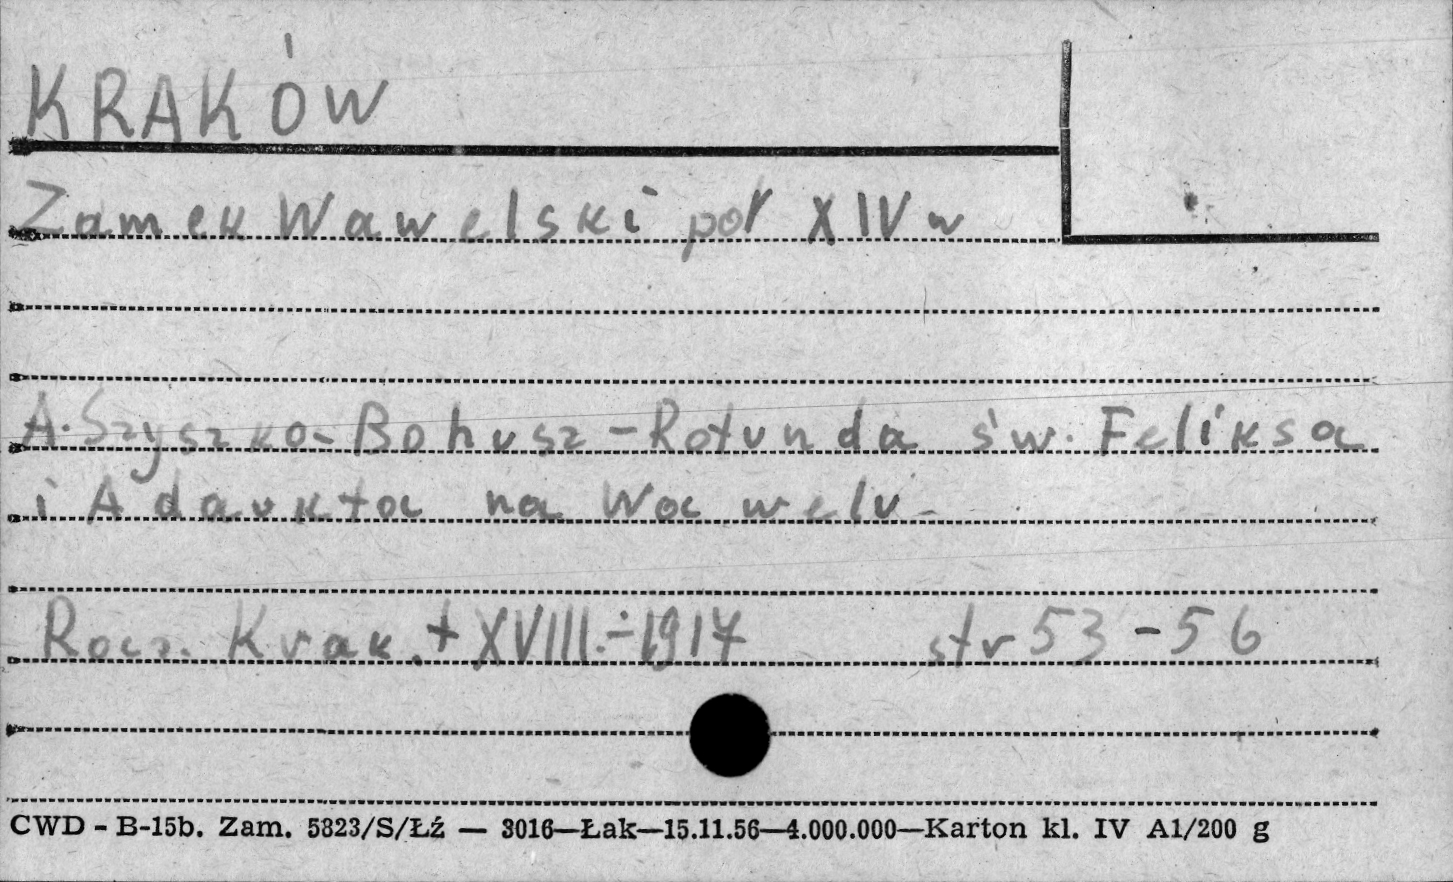 KRAKÓW
Zamek Wawelski poł XIV w
A. Szyszko-Bohusz - Rotunda św. Feliksa
i Adaukta na Wawelu -
Rocz. Krak. t XVIII. - 1917 str 53-56
CWD - B-15b. Zam. 5823/S/Łź — 3016—Łak—15.11.56—4.000.000—Karton kl. IV A1/200 g